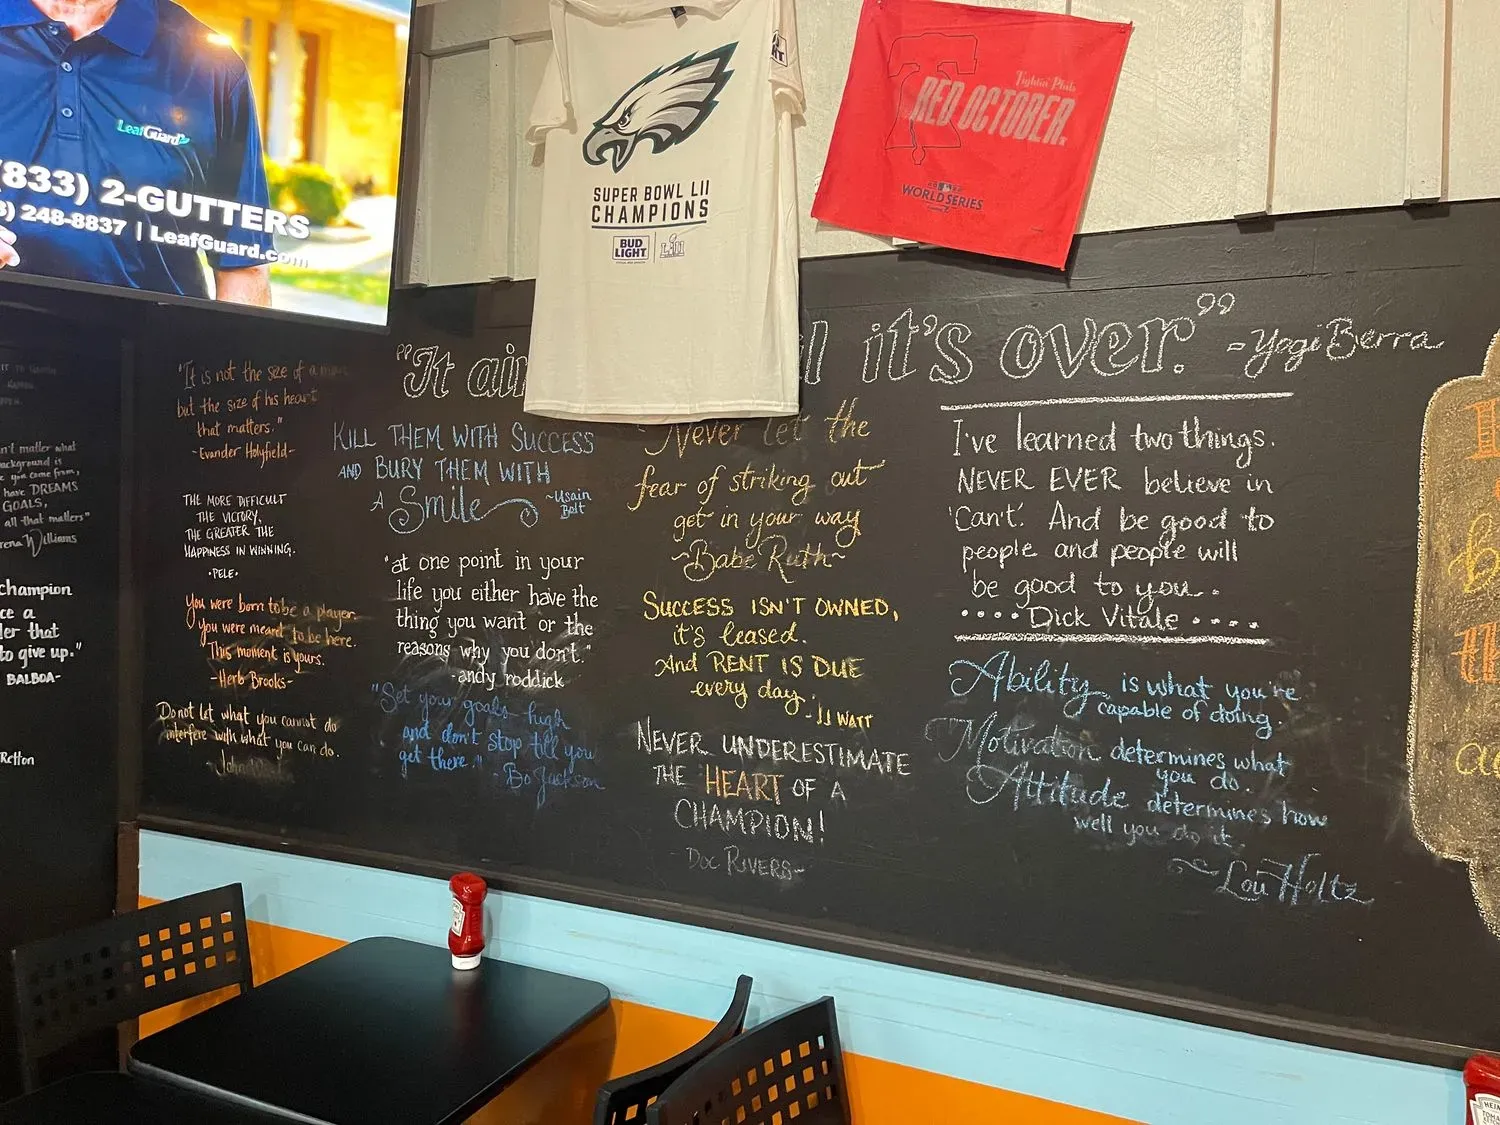 LeafGuard
(833) 2-GUTTERS
248-8837 | LeafGuard.com
SUPER BOWL LII
CHAMPIONS
BUD
LIGHT
LII
Fightin' Phils
RED OCTOBER
WORLD SERIES
"It ain
it's over." -Yogi Berra
n't matter what
ackground is
you come from,
have DREAMS
GOALS,
all that matters"
rena Williams
champion
ce a
ler that
to give up."
BALBOA-
Retton
"It is not the size of a man
but the size of his heart
that matters."
-Evander Holyfield-
THE MORE DIFFICULT
THE VICTORY,
THE GREATER THE
HAPPINESS IN WINNING.
•PELE•
You were born to be a player.
You were meant to be here.
This moment is yours.
-Herb Brooks-
Do not let what you cannot do
interfere with what you can do.
-John
KILL THEM WITH SUCCESS
AND BURY THEM WITH
A Smile ~Usain
Bolt
"at one point in your
life you either have the
thing you want or the
reasons why you don't."
-andy roddick
"Set your goals high
and don't stop till you
get there."
- Bo Jackson
"Never let the
fear of striking out
get in your way
~Babe Ruth~
SUCCESS ISN'T OWNED,
it's leased.
And RENT IS DUE
every day.
-JJ WATT
NEVER UNDERESTIMATE
THE HEART OF A
CHAMPION!
-DOC RIVERS~
I've learned two things.
NEVER EVER believe in
'Can't'. And be good to
people and people will
be good to you.
....Dick Vitale....
Ability is what you're
capable of doing.
Motivation determines what
you do.
Attitude determines how
well you do it.
~Lou Holtz
HEINZ